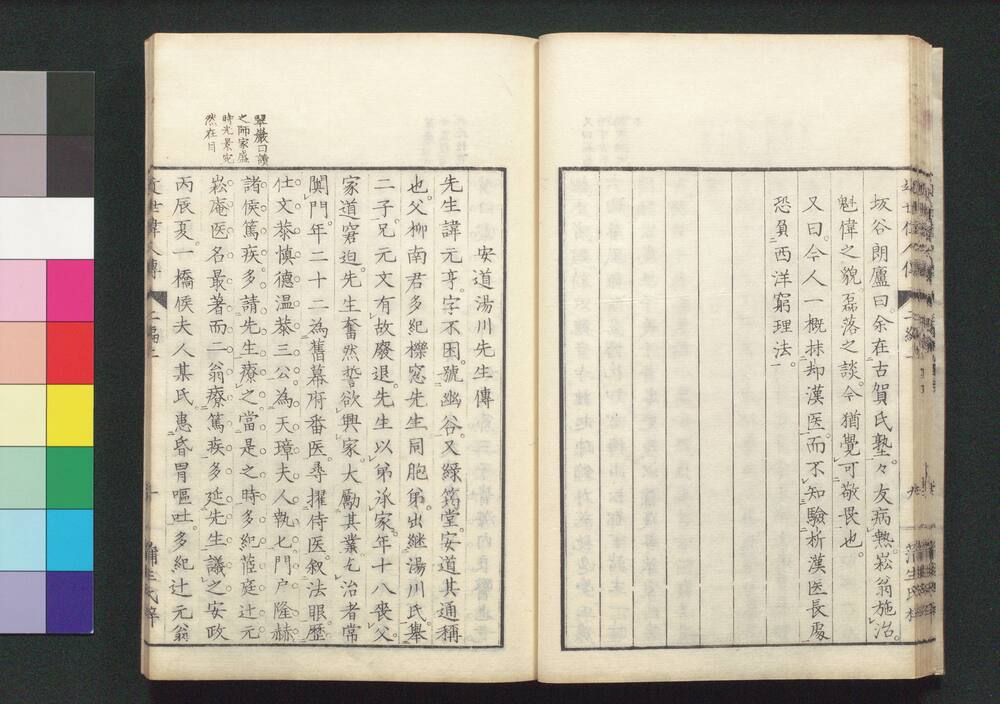 坂谷朗廬曰。余在古賀氏塾。々友病熱。崧翁施治。
魁偉之貌。磊落之談。今猶覺可敬畏也。
又曰。今人一概抹却漢医。而不知驗析漢医長處
恐負西洋窮理法。
安道湯川先生傳
先生諱元亨。字不困。號幽谷。又綠筠堂。安道其通稱
也。父柳南君。多紀櫟窓先生同胞弟。出繼湯川氏。舉
二子。兄元文有故廢退。先生以弟承家。年十八喪父。
家道窘迫。先生奮然誓欲興家。大勵其業。乞治者常
闐門。年二十二為舊幕府番医。尋擢侍医。叙法眼。歷
仕文恭慎德温恭三公。為天璋夫人執匕。門戸隆赫
諸侯篤疾多請先生療之。當是之時多紀茝庭辻元
崧庵医名最著。而二翁療篤疾多延先生議之。安政
丙辰夏。一橋侯夫人某氏惠昏冒嘔吐。多紀辻元翁
翠巖曰讀
之師家盛
時光景宛
然在目
近世偉人傳
二編上
十
蒲生氏梓